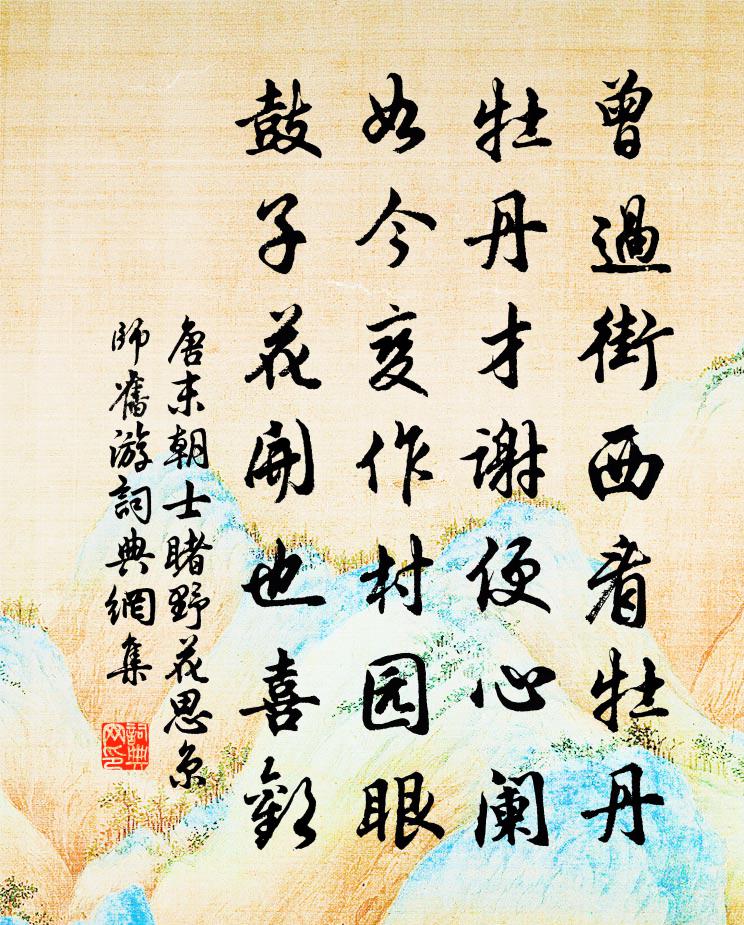 曾過街西看牡丹
牡丹才谢便心阑
如今变作村园眼
鼓子花開也喜歡
唐末朝士睹野花思京
師舊游詞典網集
詞典網印